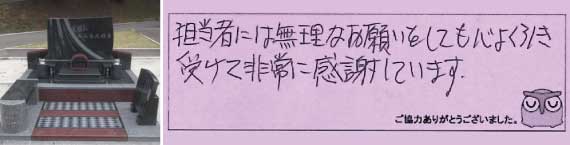 担当者には無理なお願いをしても心よくひき
受けて非常に感謝しています.
ご協力ありがとうございました。